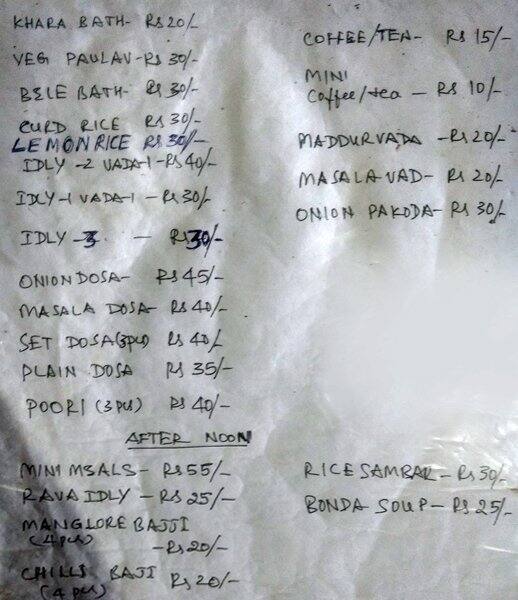 KHARA BATH- Rs 20/-
VEG PAULAV-Rs 30/-
BELE BATH- Rs 30/-
CURD RICE Rs 30/-
LEMON RICE Rs 30/-
IDLY -2 VADA-1-Rs 40/-
IDLY-1 VADA-1 -Rs 30/-
IDLY -3 - Rs 30/-
ONION DOSA- Rs 45/-
MASALA DOSA- Rs 40/-
SET DOSA(3ps) Rs 40/-
PLAIN DOSA Rs 35/-
POORI (3 pcs) Rs 40/-
COFFEE/TEA- Rs 15/-
MINI
Coffee/tea - Rs 10/-
MADDURVADA -Rs 20/-
MASALA-VAD- Rs 20/-
ONION PAKODA- Rs 30/-
AFTER NOON
MINI MEALS- Rs 55/-
RAVA IDLY -Rs 25/-
MANGLORE BAJJI
(4pcs)
-Rs 20/-
CHILLI BAJI Rs 20/-
(4 pcs)
RICE SAMBAR- Rs 30/-
BONDA SOUP- Rs 25/-